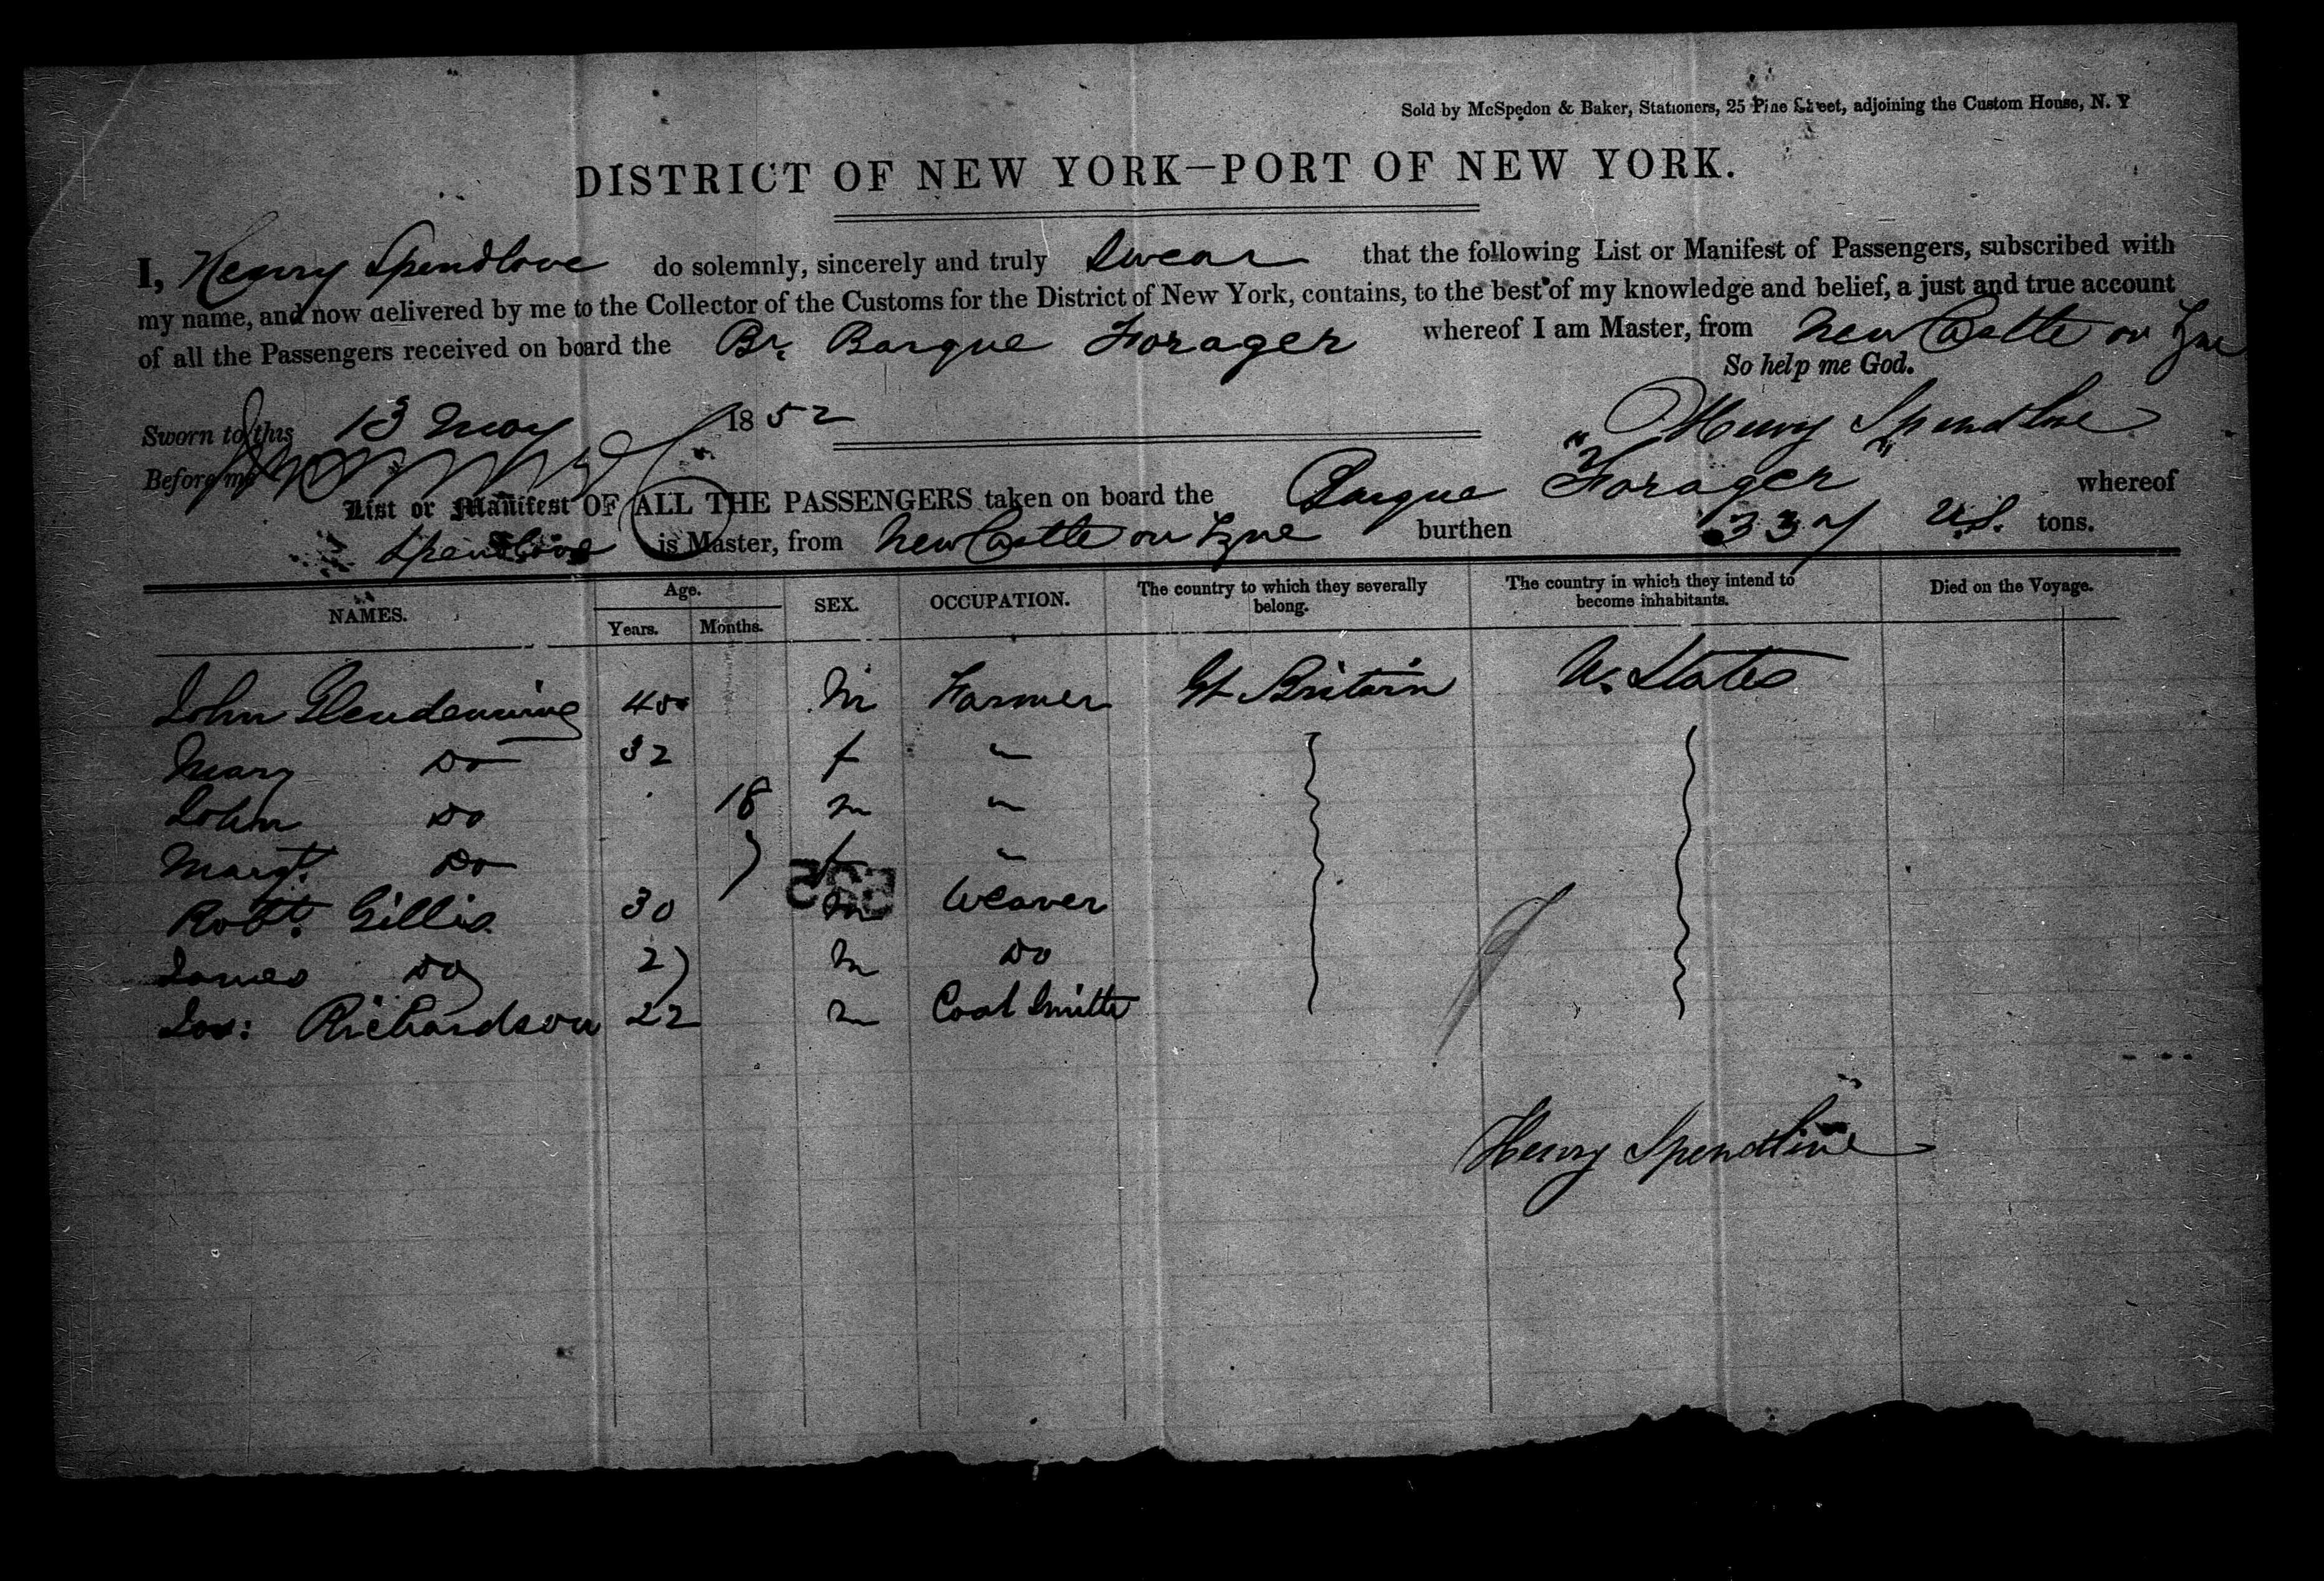 Sold by McSpedon & Baker, Stationers, 25 Pine Street, adjoining the Custom House, N. Y
DISTRICT OF NEW YORK—PORT OF NEW YORK.
I, Henry Spendlove do solemnly, sincerely and truly Swear that the following List or Manifest of Passengers, subscribed with
my name, and now delivered by me to the Collector of the Customs for the District of New York, contains, to the best of my knowledge and belief, a just and true account
of all the Passengers received on board the Br. Barque Forager whereof I am Master, from New Castle on Tyne
So help me God.
Sworn to this 13 May 1852 Henry Spendlove
Before me
List or Manifest OF ALL THE PASSENGERS taken on board the Barque "Forager" whereof
Spendlove is Master, from New Castle on Tyne burthen 337 U.S. tons.
NAMES. Age. Years. Months. SEX. OCCUPATION. The country to which they severally belong. The country in which they intend to become inhabitants. Died on the Voyage.
John Glendenning 40 M Farmer Gt Britain U. States
Mary Do 32 f "
John Do 18 m "
Margt. Do 7 f "
Robt. Gillis 30 m Weaver
James Do 27 m Do
Richardson 22 m Coal Smith
525
Henry Spendlove